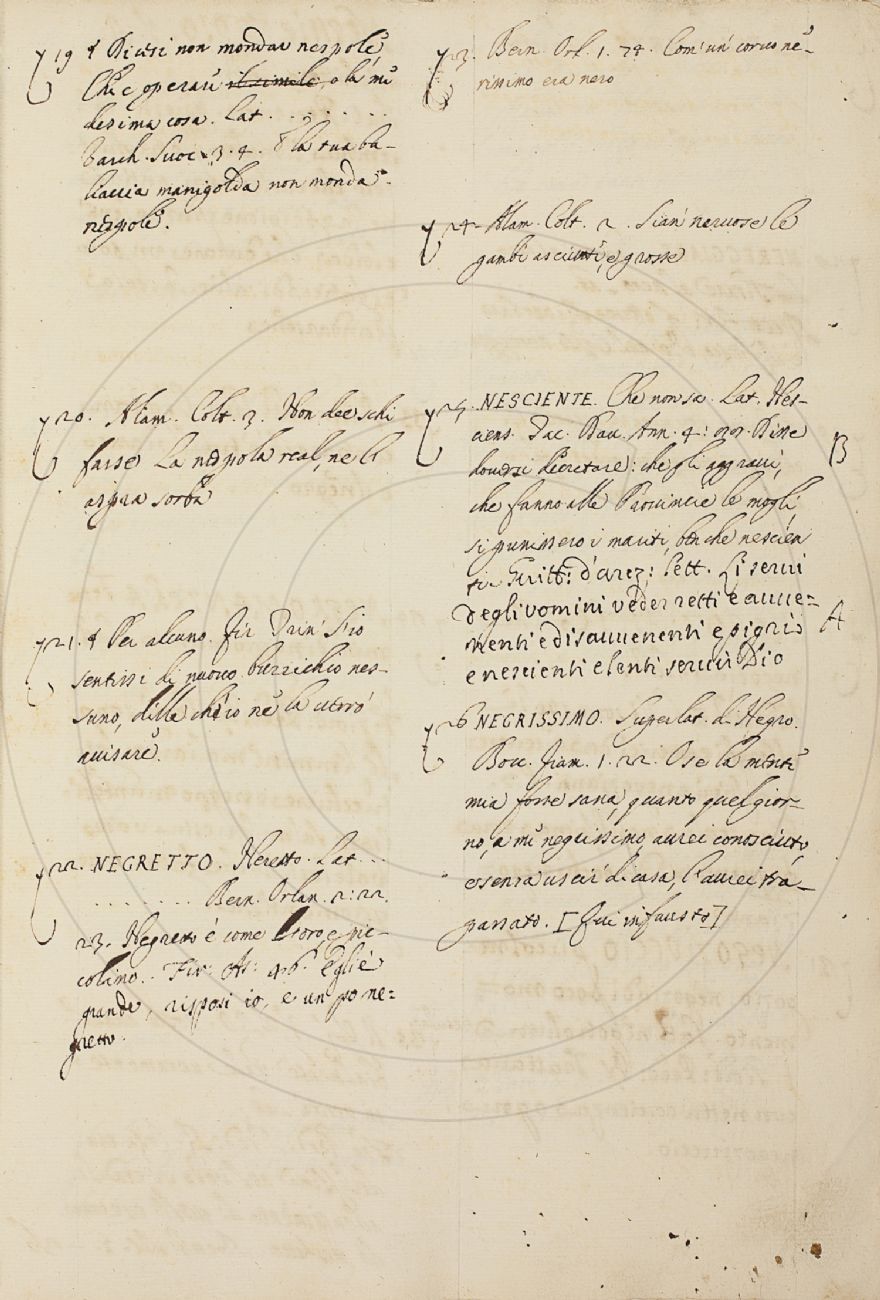 19 ¶ Dicesi non mondar nespole
Chi operari il simile, o la me
desima cosa. Lat. . . . . . . .
Varch. Suoc. 3. 4. E la tua ba-
liaccia manigolda non monda
nespole.
20. Alam. Colt. 3. Non dee schi
farse La nespola real, ne l'
aspra sorba
21. ¶ Per alcuno. Fir. Trin. S'io
sentissi di nuovo bucicchio nes-
suno, dille ch'io ne la verrò
avisare.
22. NEGRETTO. Neretto. Lat. . .
. . . . . . . . Bern. Orlan. 2: 22.
23. Negretto è come loro, e pic-
colino. Fir. As: 96. Egli è
grande, risposi io, e un po ne=
gretto.
23. Bern. Orl. 1. 74. Com'un corvo ne-
rissimo era nero
24. Alam. Colt. 2. Sian nervose le
gambe asciutti, e grosse
25. NESCIENTE. Che non sa. Lat. Nes-
ciens. Tac. Dav. Ann. 4: Disse
doversi decretare: che gli aggravi,
che fanno alle Provincie le mogli,
si punissero i mariti, ben che nescien
ti. Guitt: d'arez: lett. Li servi
degli vomini veder retti e avve=
nenti e disavvenenti e pigri
e nescienti e lenti servir Dio
B
A
26 NEGRISSIMO. Superlat. di Negro.
Bocc. Fiam. 1. 22. O se la mente
mia fosse sana, quanto quel gior-
no, a me negrissimo, avrei conosciuto,
e senza uscir di casa, l'avrei tra-
passato. [Qui infausto]